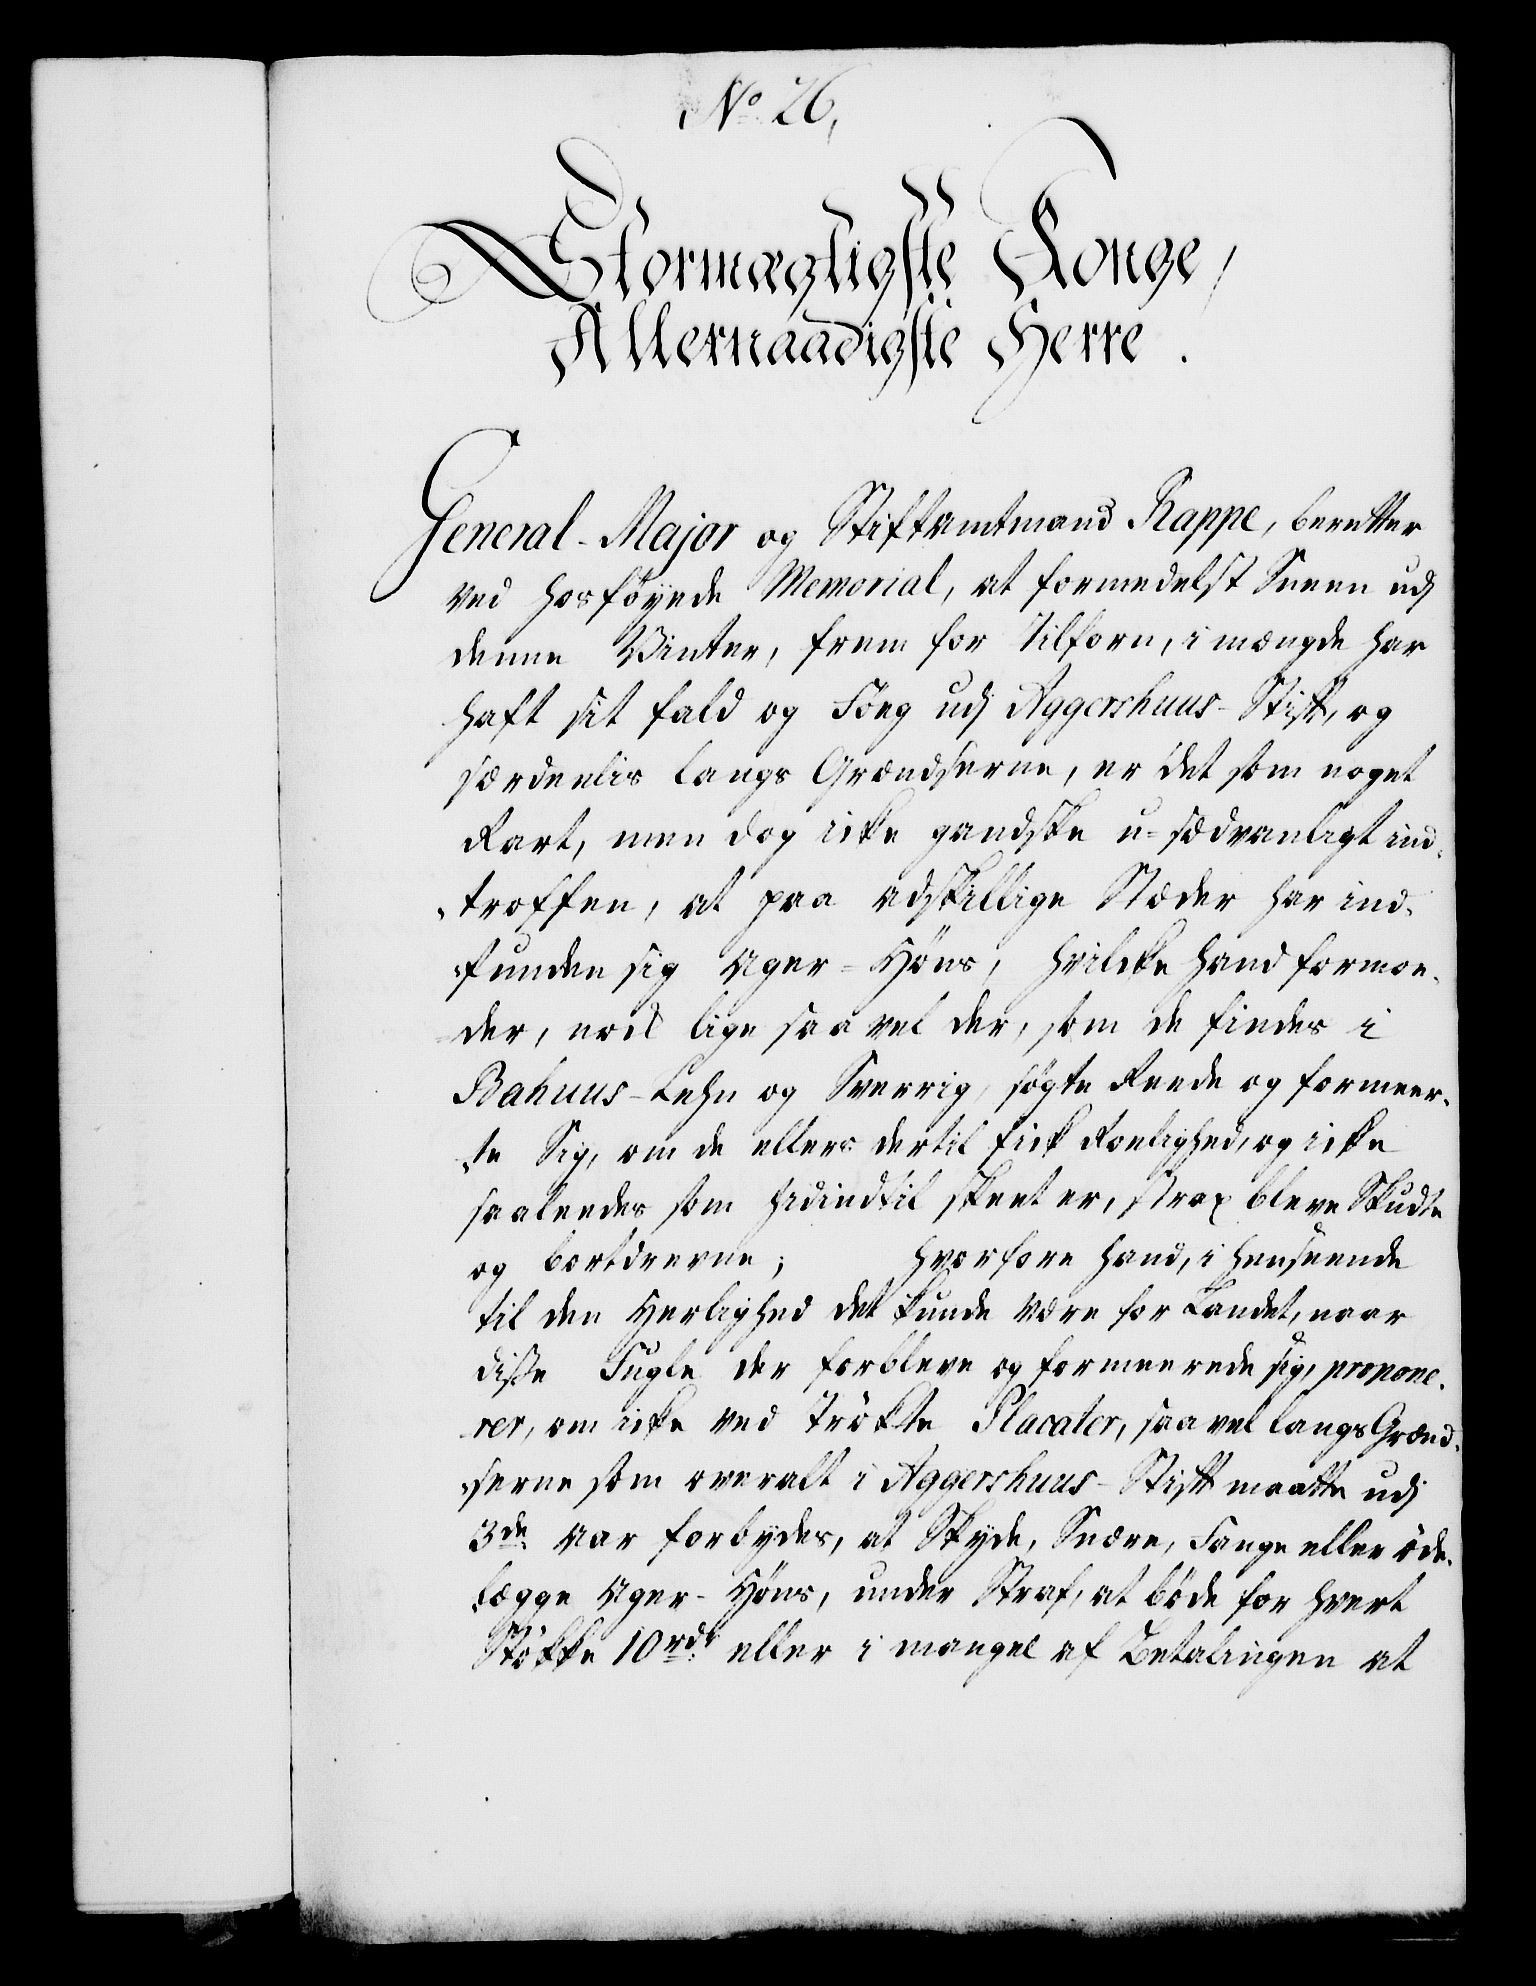 No 26,
Stormægtigste Konge,
Allernaadigste Herre.
General-Major og Stiftamtmand Rappe, beretter
ved hosföyede Memorial, at formedelst Sneen udj
denne Vinter, frem for tilforn, i mængde har
haft sit fald og Fög udj Aggershuus-Stift, og
særdeelis langs Grændserne, er det som noget
Rart, men dog icke gandske u-sædvanligt ind-
troffen, at paa adskillige Stæder har ind-
funden sig Ager-Höns, hvilcke hand formoe-
der, nock lige saa vel der, som de findes i
Bahuus-Lehn og Sverrig, sögte Reede og formeer-
te Sig, om de ellers dertil fick Roelighed, og icke
saaleedes som hidindtil skeet er, strax bleve Skudte
og bortdrevne; hvorfore hand, i henseende
til den Herlighed det kunde være for Landet, naar
disse Fugle der forbleve og formeerede sig, propone-
rer, om icke ved trökte Placater, saavel langs Grænd-
serne som overalt i Aggershuus-Stift maatte udj
3de Aar forbydes, at Skyde, Snære, Fange eller öde-
legge Ager-Höns, under Straf, at böde for hvert
Stökke 10 rdr eller i mangel af Betalingen at